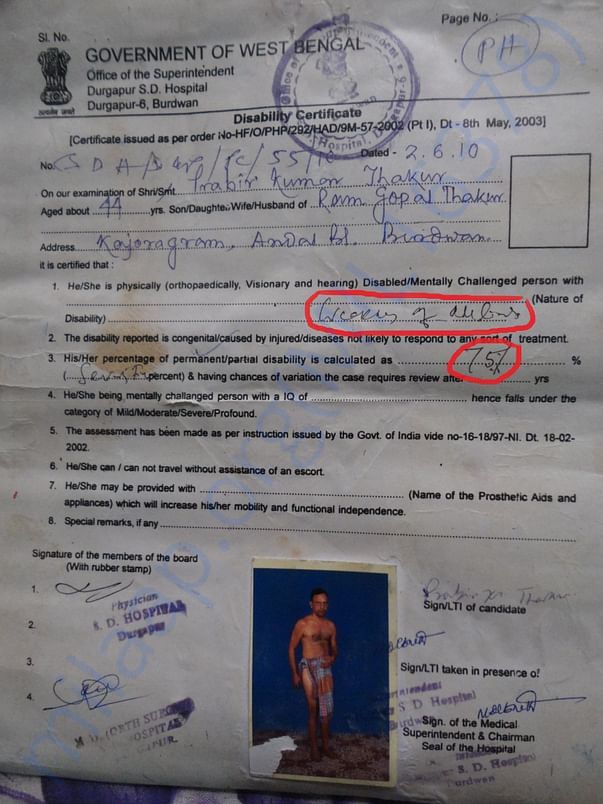 Page No. :
Sl. No.
PH
GOVERNMENT OF WEST BENGAL
Office of the Superintendent
Durgapur S.D. Hospital
Durgapur-6, Burdwan
Disability Certificate
[Certificate issued as per order No-HF/O/PHP/292/HAD/9M-57-2002 (Pt I), Dt - 8th May, 2003]
No. /55/10 Dated - 2.6.10
On our examination of Shri/Smt. Prabir Kumar Thakur
Aged about 44 yrs. Son/Daughter, Wife/Husband of Ram Gopal Thakur
Address Kajoragram, Andal Burdwan
it is certified that :
1. He/She is physically (orthopaedically, Visionary and hearing) Disabled/Mentally Challenged person with
(Nature of
Disability) of
2. The disability reported is congenital/caused by injured/diseases not likely to respond to any sort of treatment.
3. His/Her percentage of permanent/partial disability is calculated as 75% %
(percent) & having chances of variation the case requires review after yrs
4. He/She being mentally challanged person with a IQ of hence falls under the
category of Mild/Moderate/Severe/Profound.
5. The assessment has been made as per instruction issued by the Govt. of India vide no-16-18/97-NI. Dt. 18-02-
2002.
6. He/She can / can not travel without assistance of an escort.
7. He/She may be provided with (Name of the Prosthetic Aids and
appliances) which will increase his/her mobility and functional independence.
8. Special remarks, if any
Signature of the members of the board
(With rubber stamp)
1.
Physician
S. D. HOSPITAL
Durgapur
2.
3.
4.
HOSPITAL
Sign/LTI of candidate
Sign/LTI taken in presence of
S D Hospital
Burdwan
Sign. of the Medical
Superintendent & Chairman
Seal of the Hospital
S. D. Hospital
Burdwan